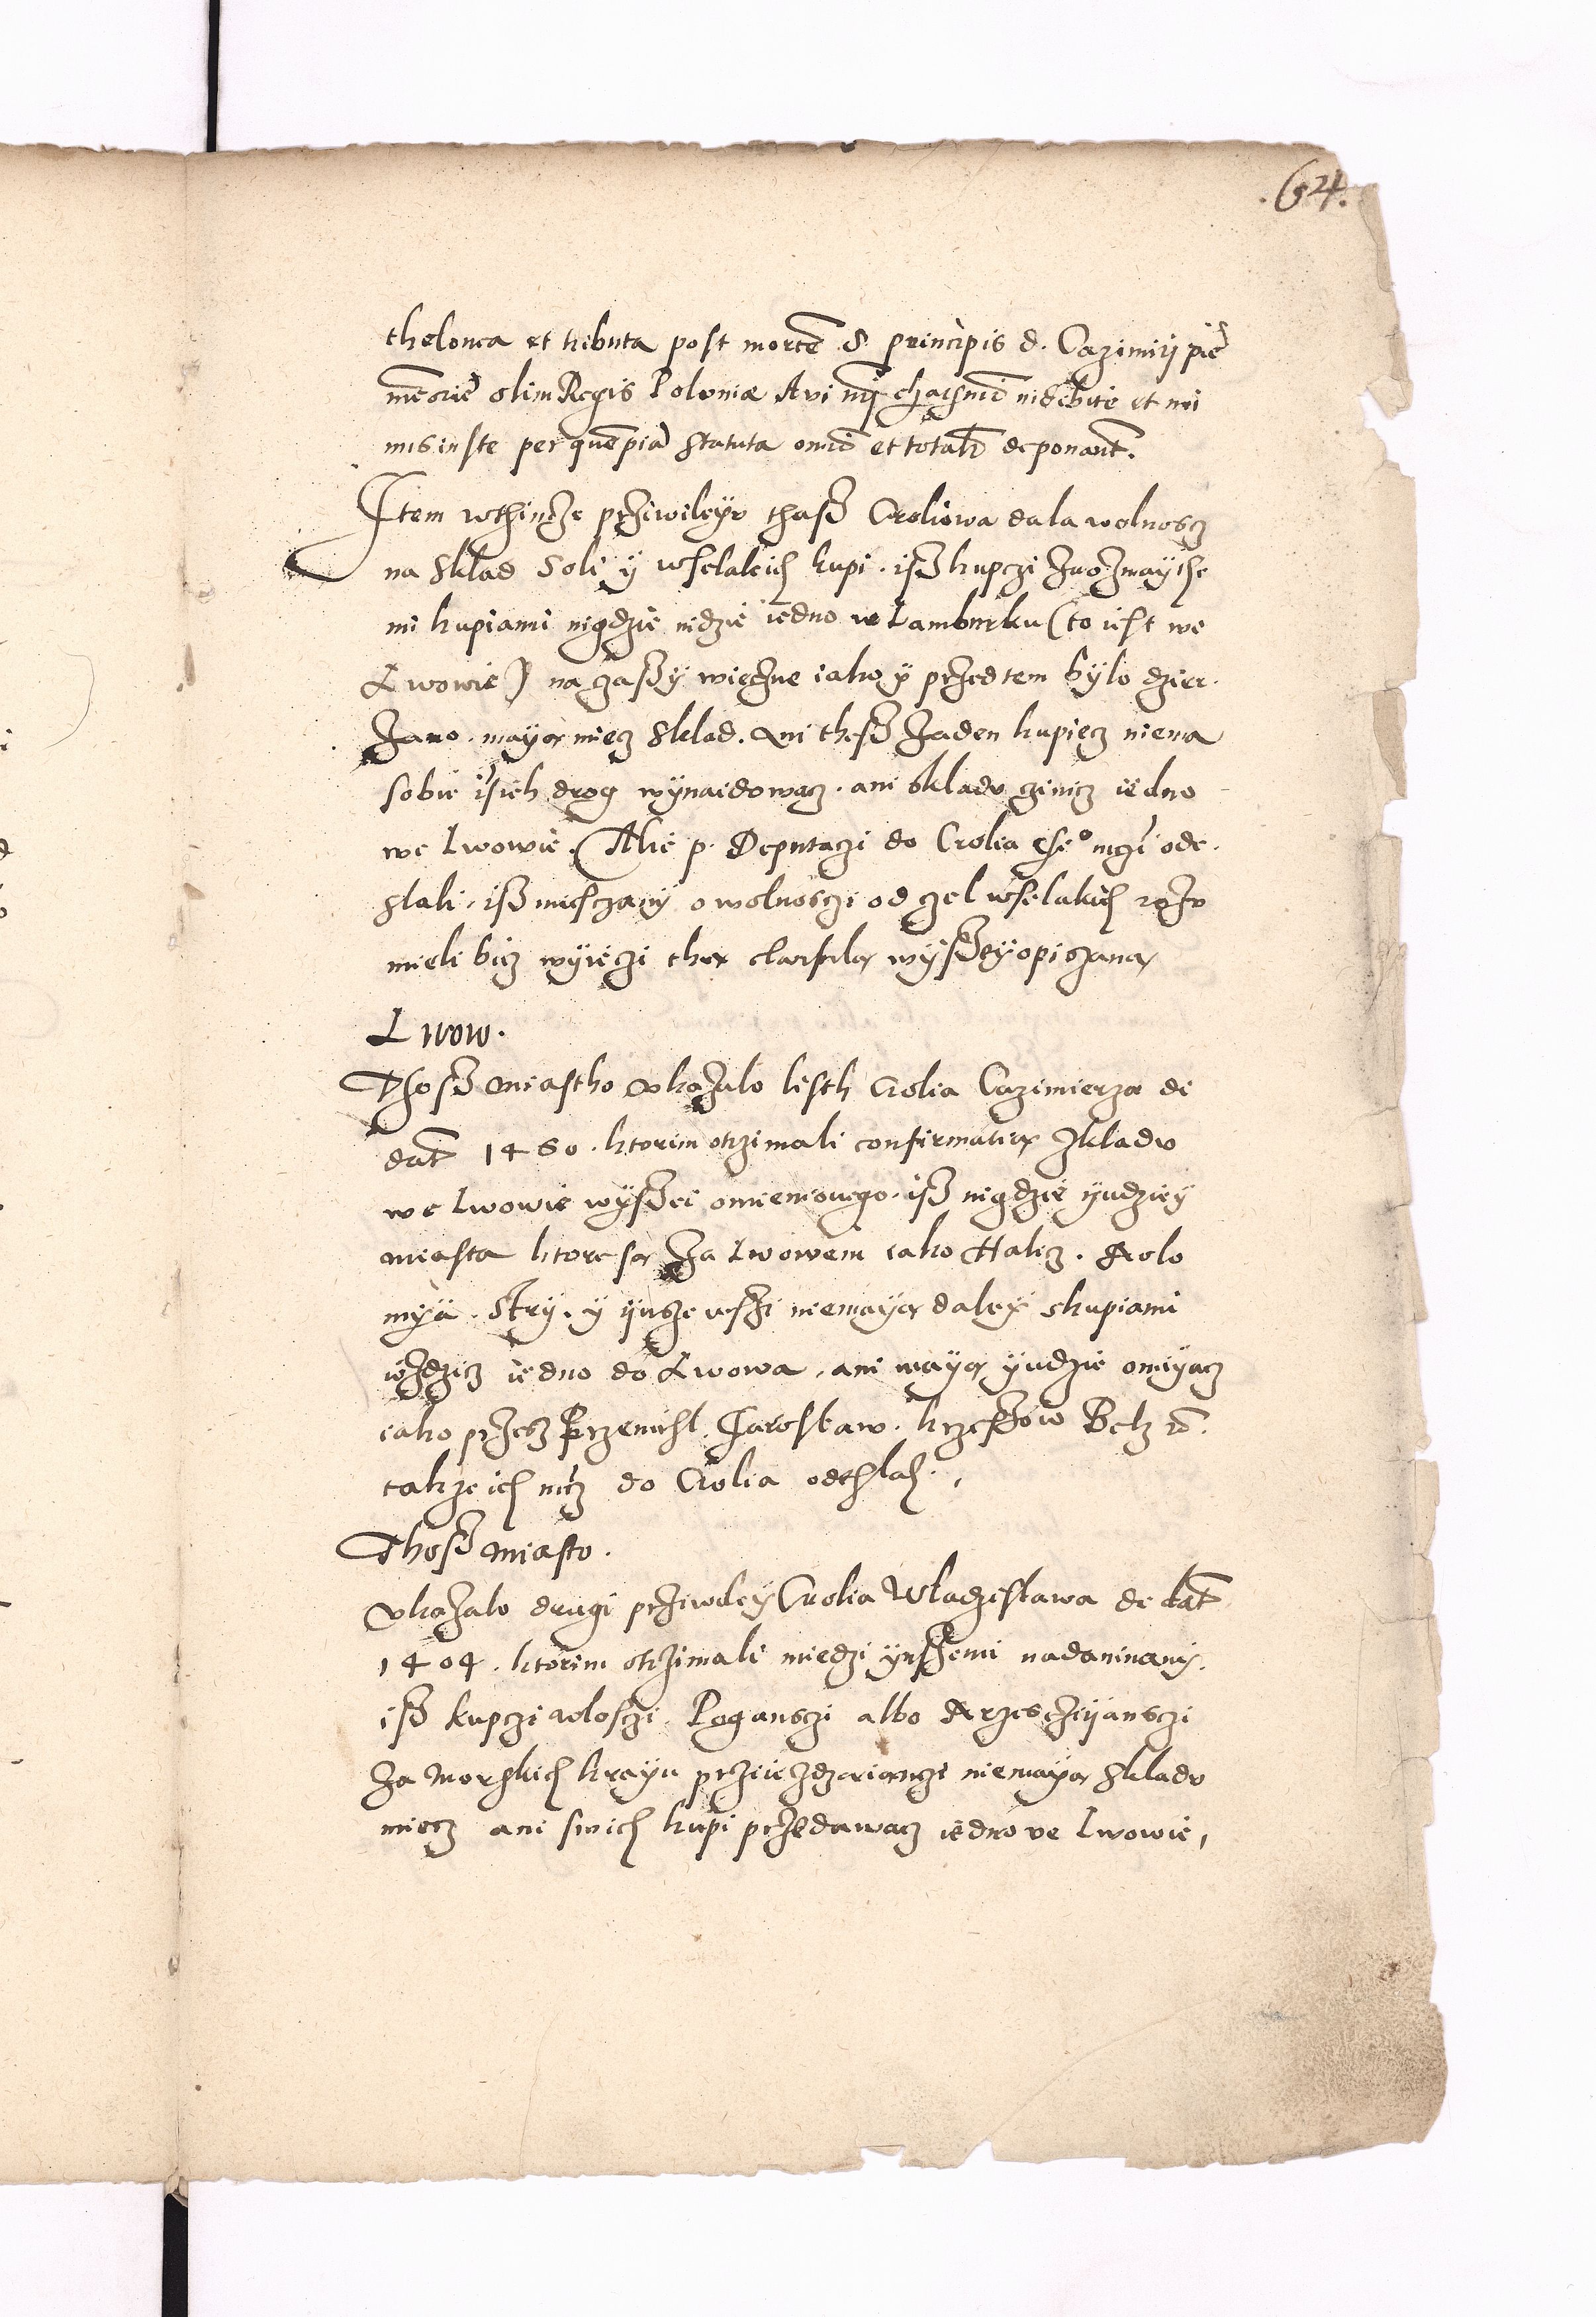 .64.
thelonea et tributa post morte S. principis d. Cazimiri pie
memorie olim Regis Poloniæ Avi nri charismi indebite et mi
nus iuste per quempia statuta omnia et totalr deponant.
Item wthimze prziwileyv thasz Croliowa dala wolnoscz
na Sklad Soli y wselakich kupi. isz kupczi z rozmaythe
mi kupiami nigdzie indzie iedno w Lamburku (to iest we
Lwowie) na czaszy wieczne iako y przedtem bylo dzier.
zano. maya miecz Sklad. Ani thesz zaden kupiecz niema
sobie inszich drog wynaidowacz. ani skladv czinicz iedno
we Lwowie. Alie p. Deputaczi do Crolia Je° mczi ode.
slali. isz miesczany o wolnosczi od czel wselakich
mieli bicz wyieczi tha clausula wyszey opiszana
Lwow.
Thosz miastho vkazalo listh Crolia Cazimierza de
dat 1460. ktorim otrzimali confirmatia skladv
we Lwowie wyszei omienionego. isz nigdzie yndziey
miasta ktore sa za Lwowem iako Halicz. Kolo
myia. Stry. y ynsze wszi niemaya daley skupiami
iezdzicz iedno do Lwowa. ani maya yndzie omiyacz
iako przesz Przemisl. Jaroslaw. krzeszow Belz
takze ich mcz do Crolia odeslali.
Thosz miasto.
vkazalo drugi prziwiley Crolia Wladzislawa de dat
1404. ktorim otrzimali miedzi ynszemi nadaninamy.
isz kupczi wlosczi. Poganszczi albo Krzesczijansczi
za morskich krayu prziiezdzaiaczi niemaya skladv
miecz ani swich kupi przedawacz iedno ve Lwowie,